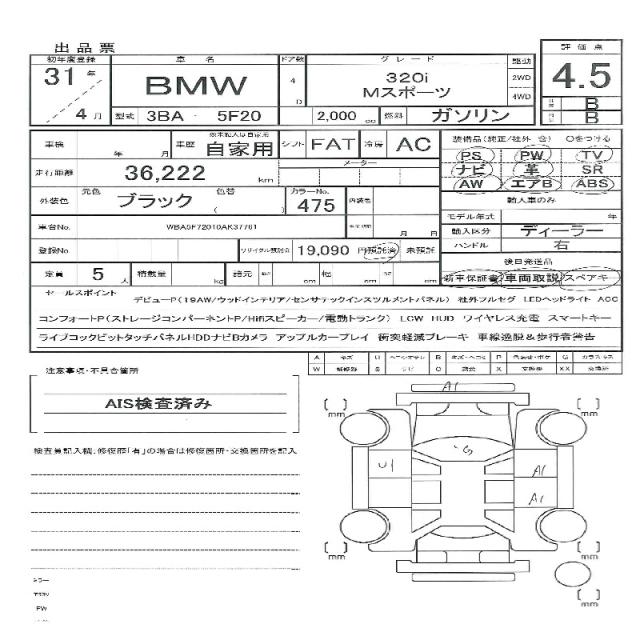 出品票
初年度登録 車名 ドア数 グレード 駆動 評価点
31年 BMW 4D 320i Mスポーツ 2WD 4WD 4.5
4月 型式 3BA - 5F20 2,000 cc 燃料 ガソリン B
B
車検 年 月 車歴 自家用 シフト FAT 冷房 AC 装備品(純正/社外 含) ○をつける
PS PW TV
走行距離 36,222 km メーター ナビ 革 SR
AW エアB ABS
外装色 元色 ブラック 色替 ( ) カラーNo. 475 内装色 輸入車のみ
モデル年式 年
車台No. WBA5F72010AK37761 月 日 輸入区分 ディーラー
登録No. リサイクル預託金 19,090 円 預託済 未預託 ハンドル 右
後日発送品
定員 5人 積載量 kg 諸元 cm 幅 cm cm 新車保証書 車両取説 スペアキ
セールスポイント
デビューP(19AW/ウッドインテリア/センサテックインスツルメントパネル) 社外フルセグ LEDヘッドライト ACC
コンフォートP(ストレージコンパーネントP/Hifiスピーカー/電動トランク) LCW HUD ワイヤレス充電 スマートキー
ライブコックピットタッチパネルHDDナビBカメラ アップルカープレイ 衝突軽減ブレーキ 車線逸脱&歩行者警告
注意事項・不具合箇所
AIS検査済み
検査員記入欄:修復歴「有」の場合は修復箇所・交換箇所を記入
A1
mm mm
S
U1 A1
A1
mm mm
mm
PW